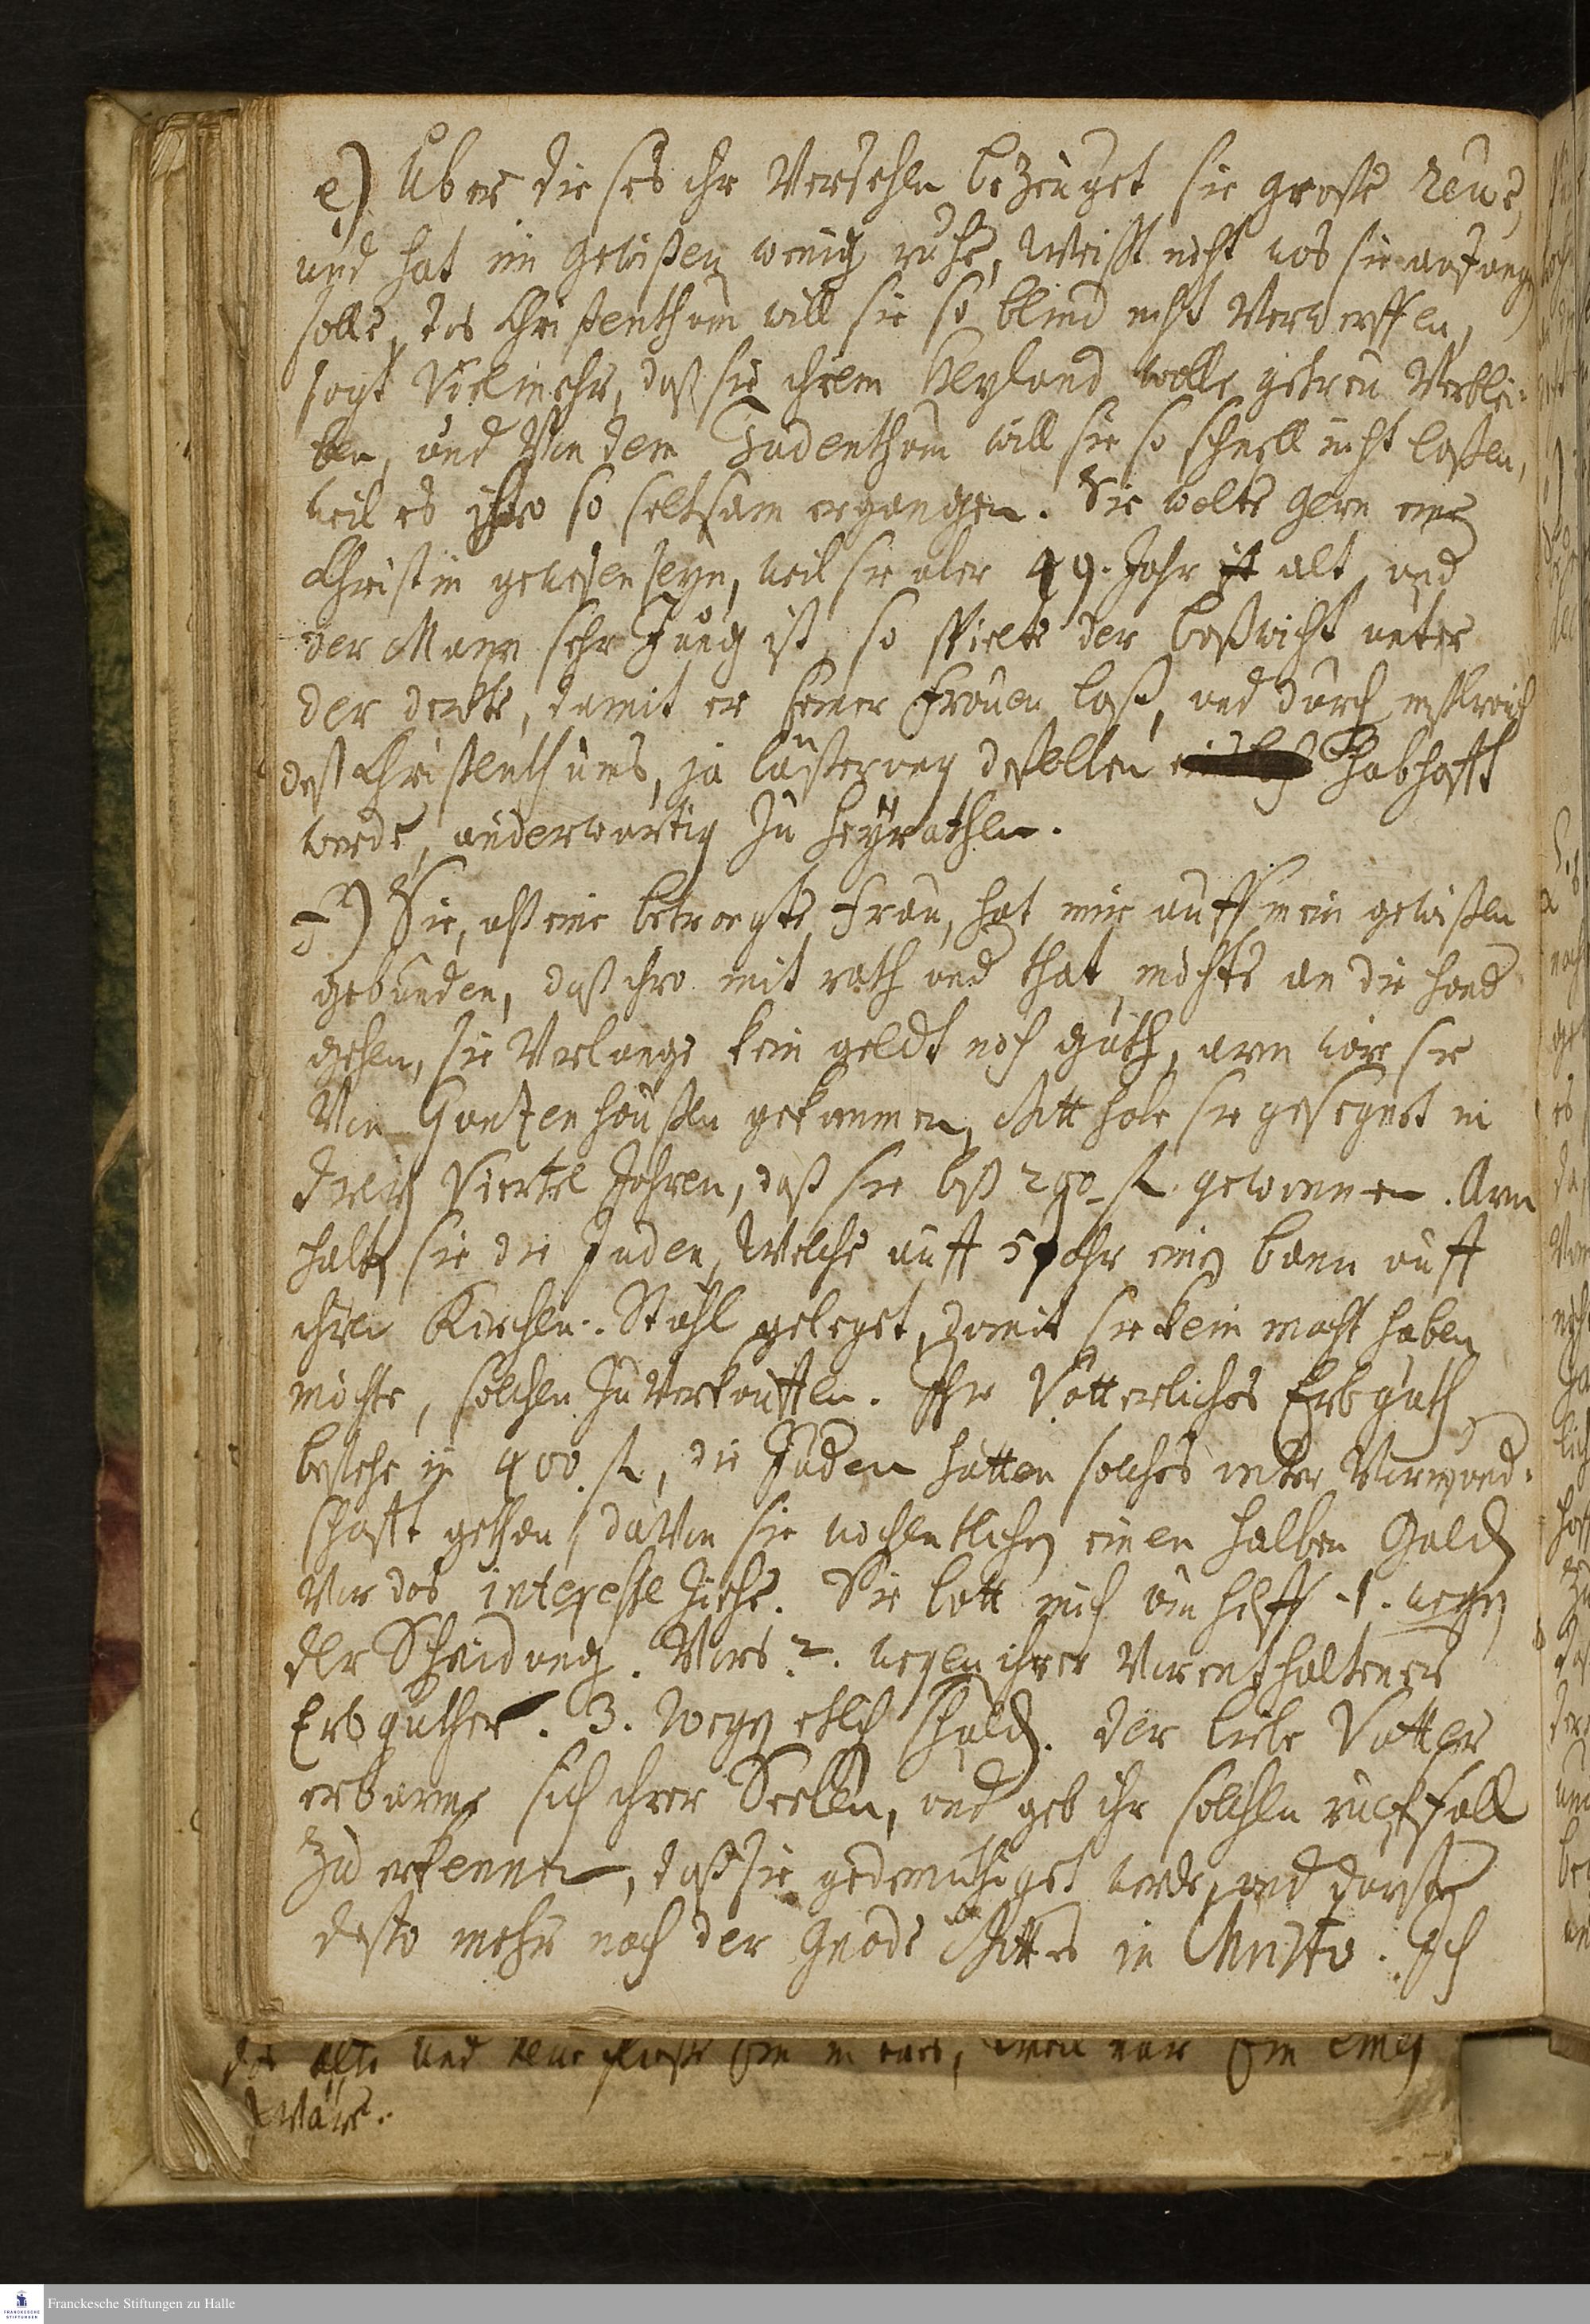 e) Uber dieses ihr Versehen bezeuget sie große reue,
und hat im gewißen wenig ruhe, Weißt nicht was sie anfangen
solle, das Christenthum will sie so blind nicht Verwerffen,
sagt Vielmehr, daß sie ihrem Heyland wolle getreu Verblei-
ben, und Von dem Judenthum will sie so schnell nicht laßen,
weil es ihro so seltsam ergangen. Sie wolte gern eine
Christin gewesen seyn, weil sie aber 49. Jahr ist alt, und
der Mann sehr Jung ist, so spielte der boßwicht unter
der deckte, damit er seiner Frauen loß, und durch
deß Christenthums, ja lästerung deßelben habhafft
werde, anderwärtig zu heyrathen.
f) Sie, alß eine betrangte Frau, hat mir auff mein gewißen
gebunden, daß ihro mit rath und that möchte an die hand
gehen, sie Verlange kein geldt noch guth, arm wäre sie
Von Guntzenhaußen gekommen, Gott habe sie gesegnet in
drey Viertel Jahren, daß sie biß 290 fl. gewonnen. Arm
halte sie die Juden, Welche auff 5 Jahr einen bann auff
ihren Kirchen-Stuhl geleget, damit sie kein macht haben
möchte, solchen zu Verkauffen. Ihr Vätterliches Erbguth
bestehe in 400. fl, die Juden hätten solches unter Vormund-
schafft gethan, davon sie wochentlichen einen halben Guld.
Vor das interesse ziehe. Sie batt mich um hilff 1. wegen
der Scheidung. Vors 2. wegen ihrer Vorenthaltener
Erbgüther. 3. Wegen etlich schuld. der liebe Vatter
erbarme sich ihrer Seelen, und geb ihr solchen ruckfall
zu erkennen, daß sie gedemüthiget werde, und durste
desto mehr nach der Gnade Gottes in Christo. Ich
alte und neue in
wäre.
Franckesche Stiftungen zu Halle